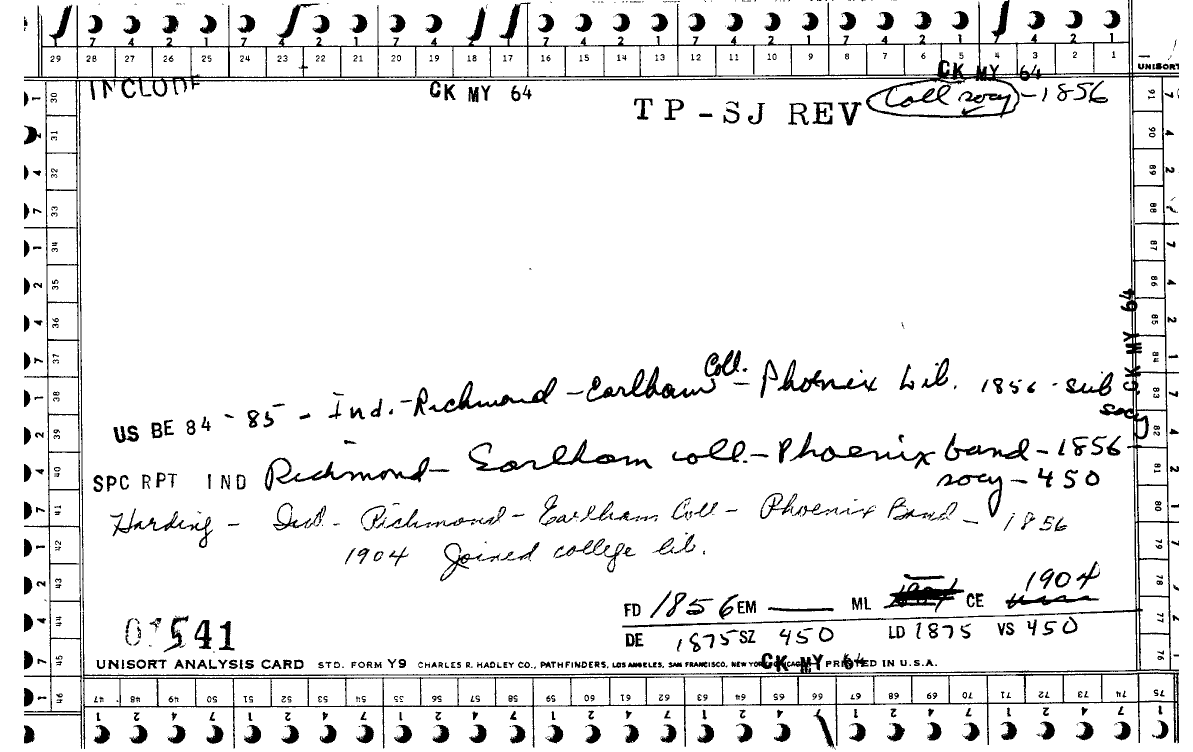 7 4 2 1 7 4 2 1 7 4 2 1 7 4 2 1 7 4 2 1
29 28 27 26 25 24 23 22 21 20 19 18 17 16 15 14 13 12 11 10 9 8 7 6 5 4 3 2 1
UNISORT
CK MY 64
INCLUDE
CK MY 64
TP-SJ REV
Coll socy - 1856
CK MY 64
US BE 84 - 85 - Ind. - Richmond - Earlham Coll. - Phoenix Lib. 1856 - sub
socy
SPC RPT IND Richmond - Earlham coll. - Phoenix band - 1856
socy - 450
Harding - Ind. - Richmond - Earlham Coll - Phoenix Band - 1856
1904 Joined college lib.
1904
FD 1856 EM ____ ML CE
DE 1875 SZ 450 LD 1875 VS 450
541
UNISORT ANALYSIS CARD STD. FORM Y9 CHARLES R. HADLEY CO., PATHFINDERS, LOS ANGELES, SAN FRANCISCO, NEW YORK, CHICAGO PRINTED IN U.S.A.
CK MY 64
30 31 32 33 34 35 36 37 38 39 40 41 42 43 44 45 46
91 90 89 88 87 86 85 84 83 82 81 80 79 78 77 76 75
47 48 49 50 51 52 53 54 55 56 57 58 59 60 61 62 63 64 65 66 67 68 69 70 71 72 73 74